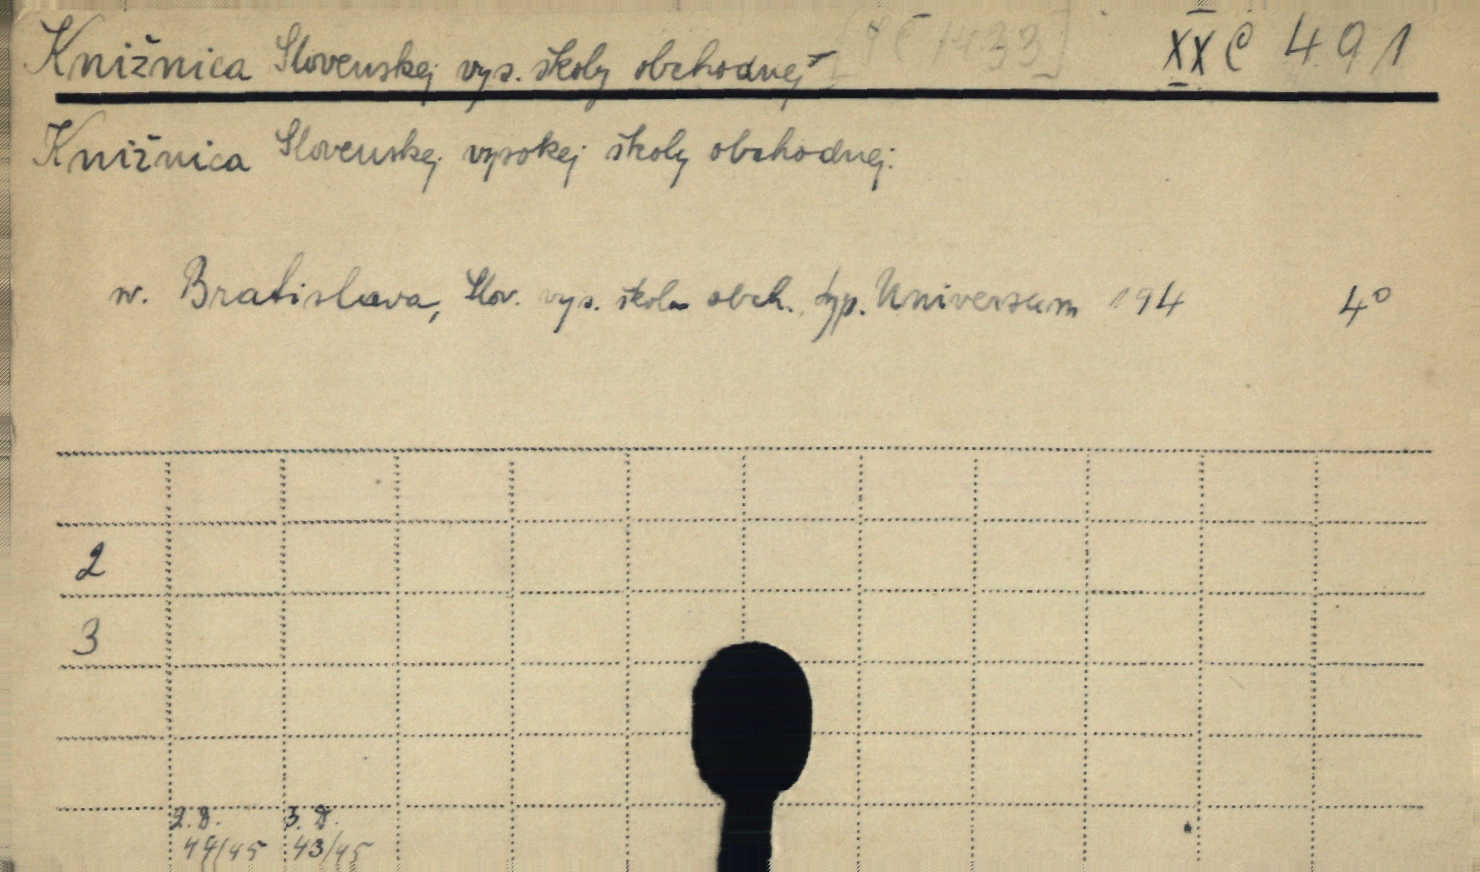 Knižnica Slovenskej vys. školy obchodnej XX C 491
Knižnica Slovenskej vysokej školy obchodnej.
Bratislava, Slov. vys. škola obch., typ. Universum 194 4°
2
3
2. D. 3. D.
44/45 43/45